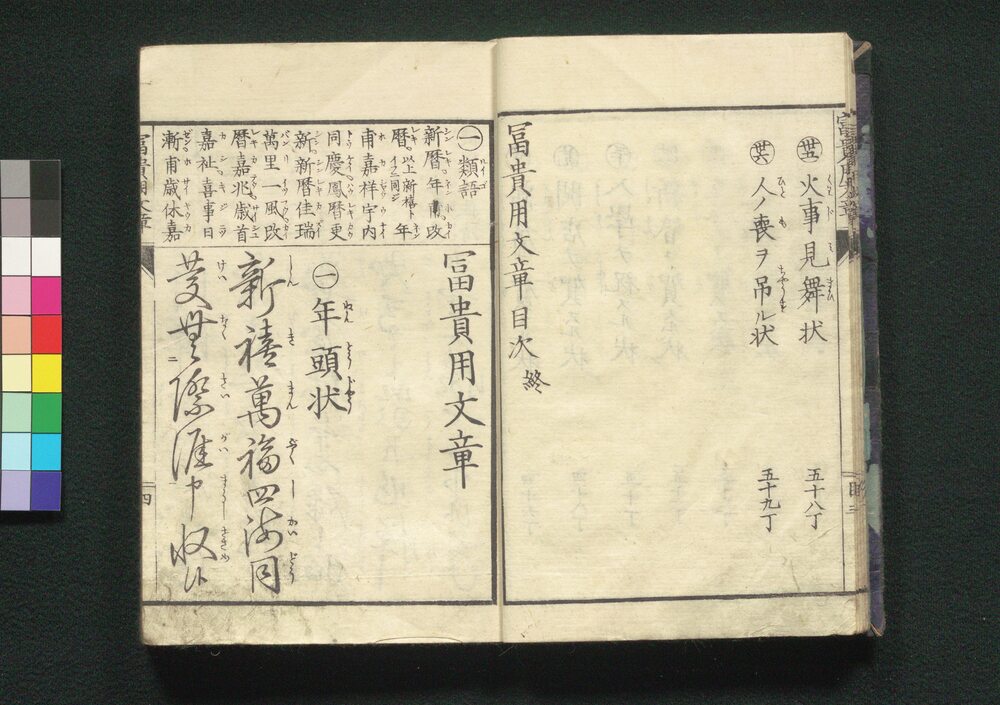 ㊄ 火事見舞状 五十八丁
人ノ喪ヲ吊ル状 五十九丁
冨貴用文章目次 終
㊀ 類語
新暦年甫改
暦以上新禧トイフニ同ジ年
甫嘉祥宇内
同慶鳳暦更
新新暦佳瑞
萬里一風改
暦嘉兆歳首
嘉祉喜事日
漸甫歳休嘉
冨貴用文章
㊀ 年頭状
新禧萬福四海同
慶無際涯申収候
冨貴用文章
四